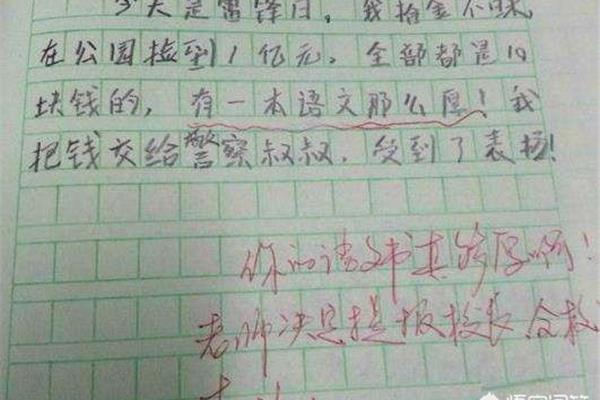 今天是雷锋日，我拾金不昧，
在公园捡到1亿元，全部都是10
块钱的，有一本语文那么厚！我
把钱交给警察叔叔，受到了表扬！
你的语文书真够厚啊！
老师决定提报校长
悟空问答